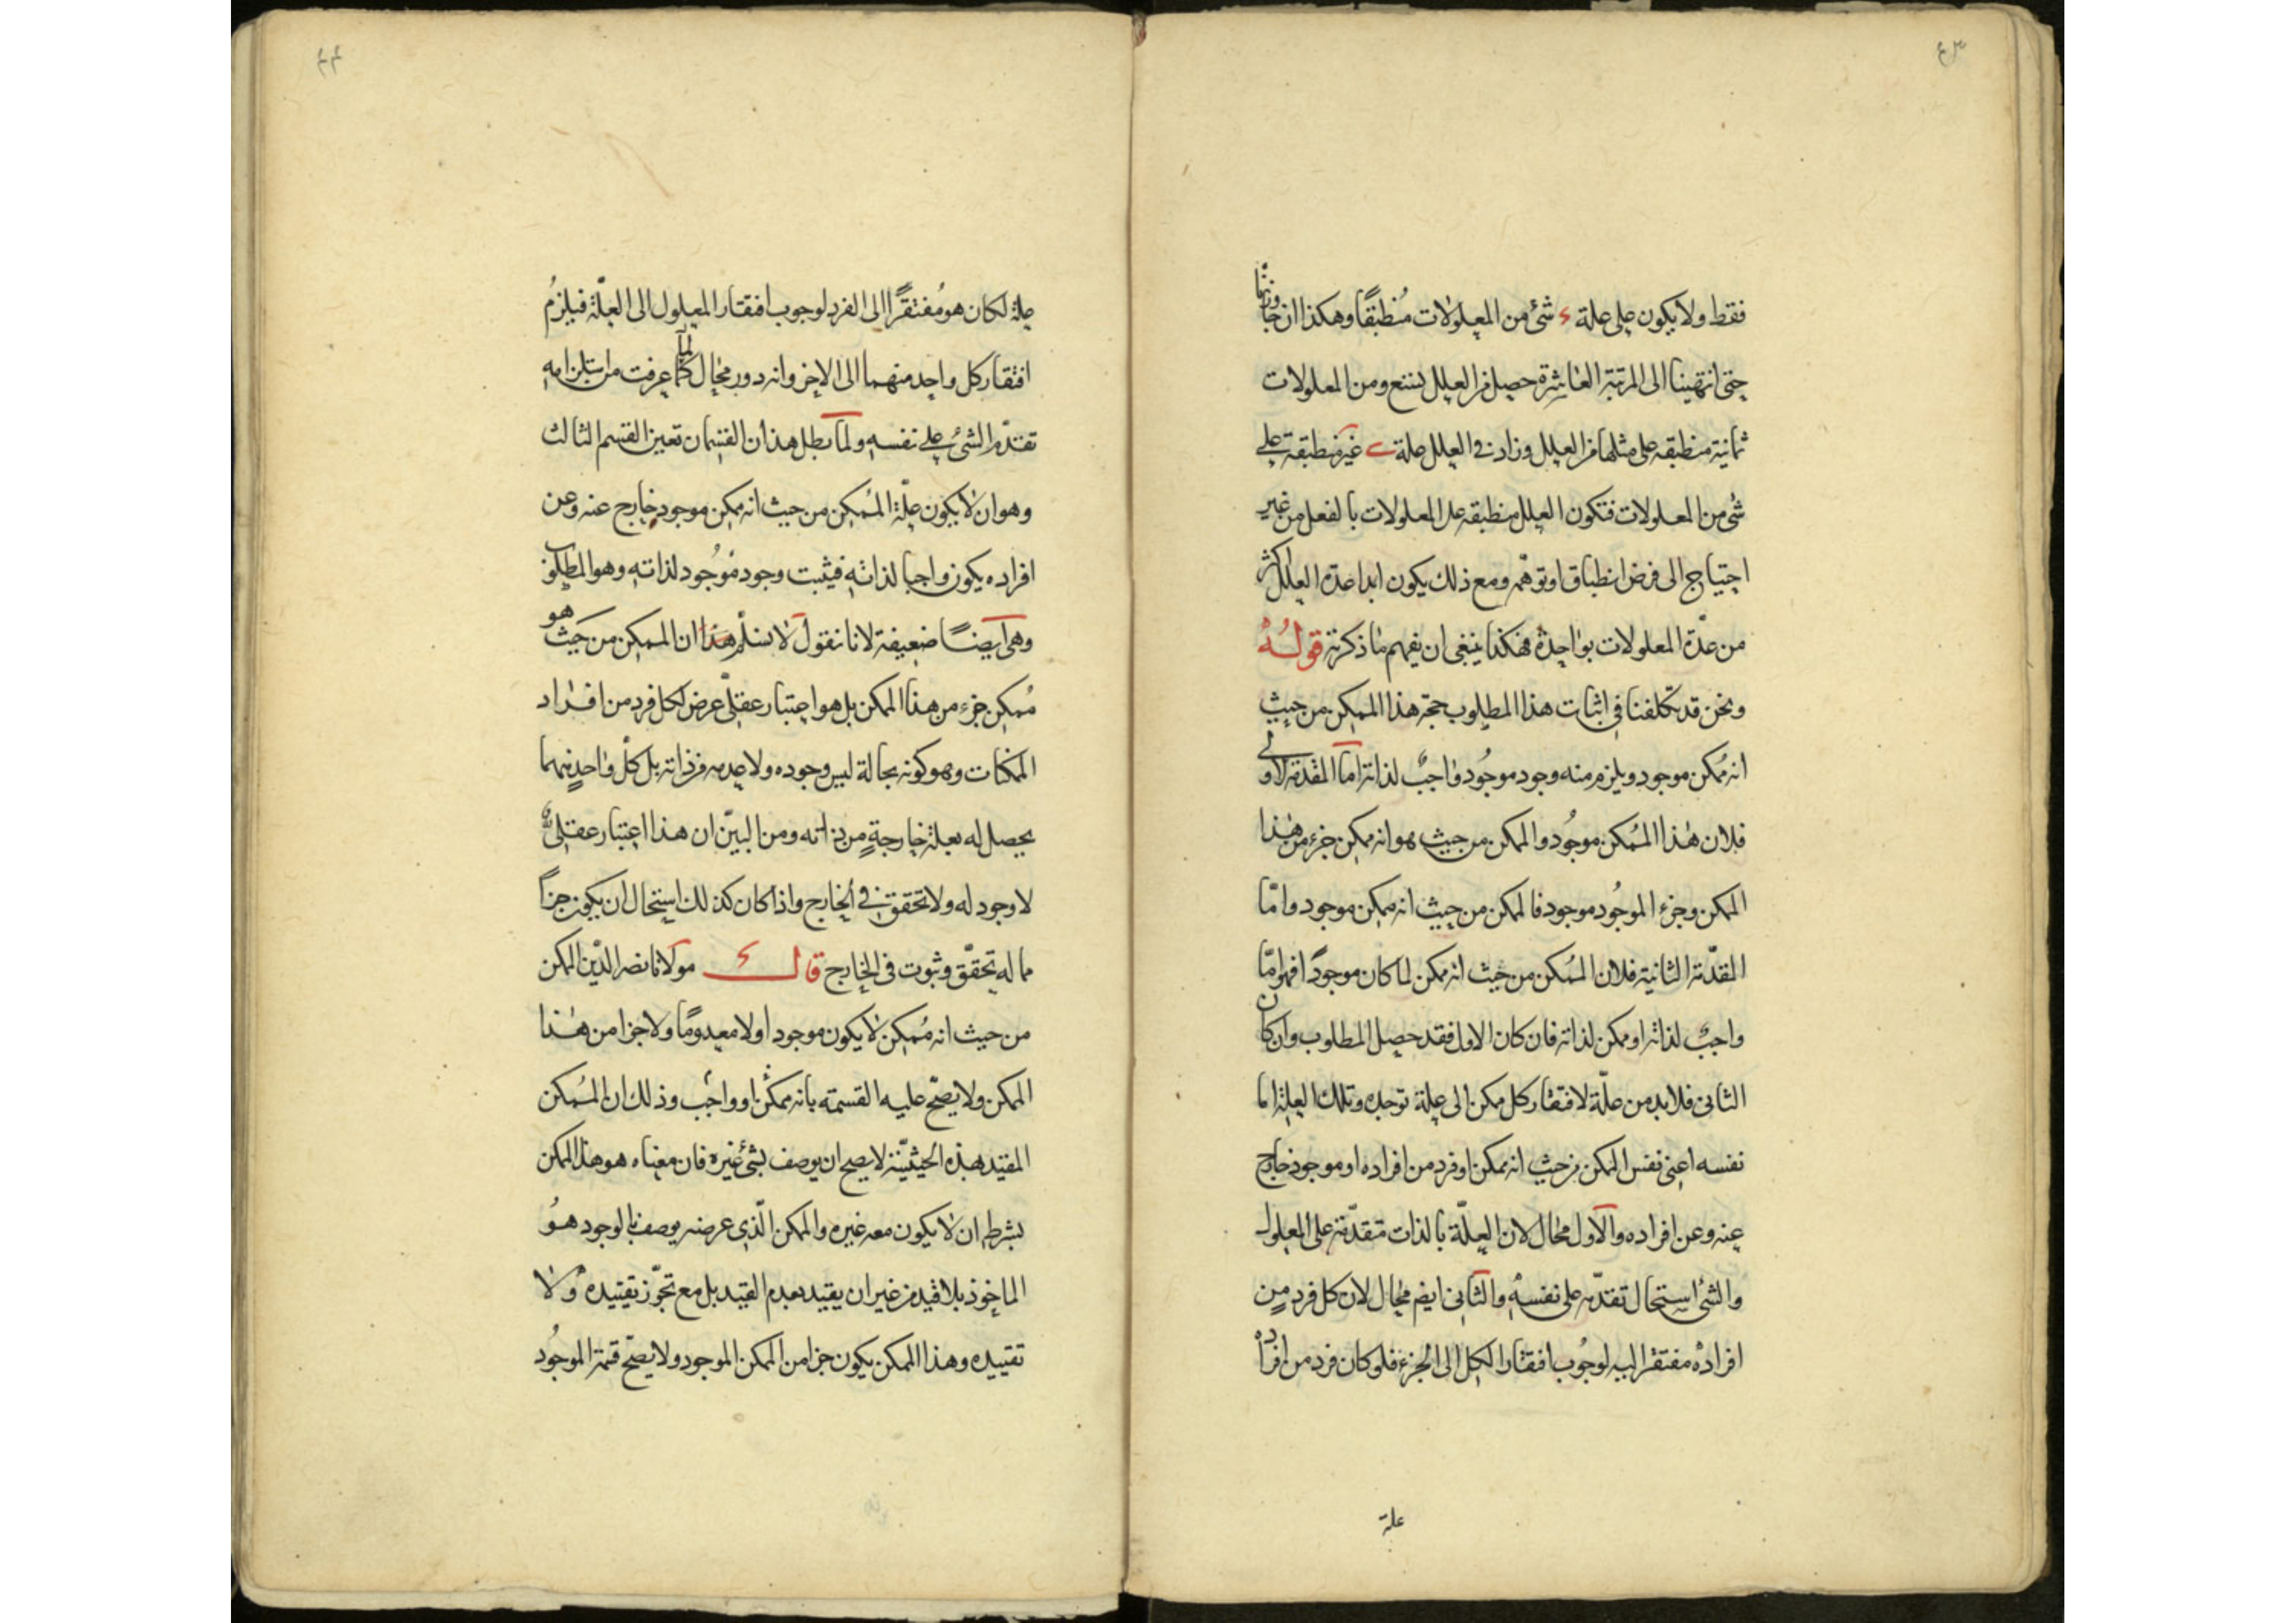 ٤٣
فقط ولا يكون على علة ء شئ من المعلولات منطبقًا وهكذا ان جاوزنا
حتى انتهينا الى المرتبة العاشرة حصل من العلل تسع ومن المعلولات
ثمانية منطبقه على مثلها من العلل وزاد فى العلل علة ى غير منطبقة على
شئ من المعلولات فتكون العلل منطبقه على المعلولات بالفعل من غير
احتياج الى فرض انطباق او توهّم ومع ذلك يكون ابدا عدة العلل اكثر
من عدّة المعلولات بواحدة هكذا ينبغى ان يفهم ما ذكرته قوله
ونحن قد تكلفنا فى اثبات هذا المطلوب حجة هذا الممكن من حيث
انه مُمكن موجود ويلزم منه وجود موجُود واجبٌ لذاته امّا المقدمة الاولى
فلان هذا المُمكن موجُود والممكن من حيث هو انه ممكن جزء من هذا
الممكن وجزء الموجُود موجود فالممكن من حيث انه ممكن موجود وامّا
المقدّمة الثانية فلان المُمكن من حيث انه ممكن لما كان موجودًا فهو امّا
واجبٌ لذاته او ممكن لذاته فان كان الاول فقد حصل المطلوب وان كان
الثانى فلابد من علّة لافتقار كل ممكن الى علة توجده وتلك العلة اما
نفسه اعنى نفس الممكن من حيث انه ممكن او فرد من افراده او موجود خارج
عنه وعن افراده والاول محال لان العلّة بالذات متقدّمة على المعلول
والشئ استحال تقدّمه على نفسه والثانى ايضا محال لان كل فرد من
افراده مفتقر اليه لوجُوب افتقار الكل الى الجزء فلو كان فرد من افراده
علة
٤٤
علة لكان هو مُفتقرًا الى الفرد لوجوب افتقار المعلول الى العلّة فيلزمُ
افتقار كل واحد منهما الى الاخر وانه دور محال لما عرفت من استلزامه
تقدّم الشئ على نفسه ولما بطل هذان القسمان تعين القسم الثالث
وهو ان لا يكون علّة المُمكن من حيث انه ممكن موجود خارج عنه وعن
افراده يكون واجبا لذاته فيثبت وجود موجُود لذاته وهو المطلوب
وهى ايضًا ضعيفة لانا نقول لا نسلّم هذا ان الممكن من حيث هو
مُمكن جزء من هذا الممكن بل هو اعتبار عقلىّ عرض لكل فرد من افراد
الممكنات وهو كونه بحالة ليس وجوده ولا عدمه من ذاته بل كلّ واحدٍ منهما
يحصل له بعلة خارجةٍ من ذاته ومن البيّن ان هذا اعتبار عقلىٌّ
لا وجود له ولا تحقق فى الخارج واذا كان كذلك استحال ان يكون جزأ
مما له تحقّق وثبوت فى الخارج قال مولانا نصير الدّين الممكن
من حيث انه مُمكن لا يكون موجودا ولا معدومًا ولا جزا من هذا
الممكن ولا يصحّ عليه القسمة بانه ممكنٌ او واجبٌ وذلك ان المُمكن
المقيّد بهذه الحيثيّة لا يصح ان يوصف بشئ غيره فان معناه هو هذا الممكن
بشرط ان لا يكون معه غيره والممكن الّذى عرضه يوصف بالوجود هوُ
الماخوذ بلا قيد من غير ان يقيد بعدم القيد بل مع تجوّز تقييده ولا
تقييده وهذا الممكن يكون جزا من الممكن الموجود ولا يصحّ قسمة الموجُود